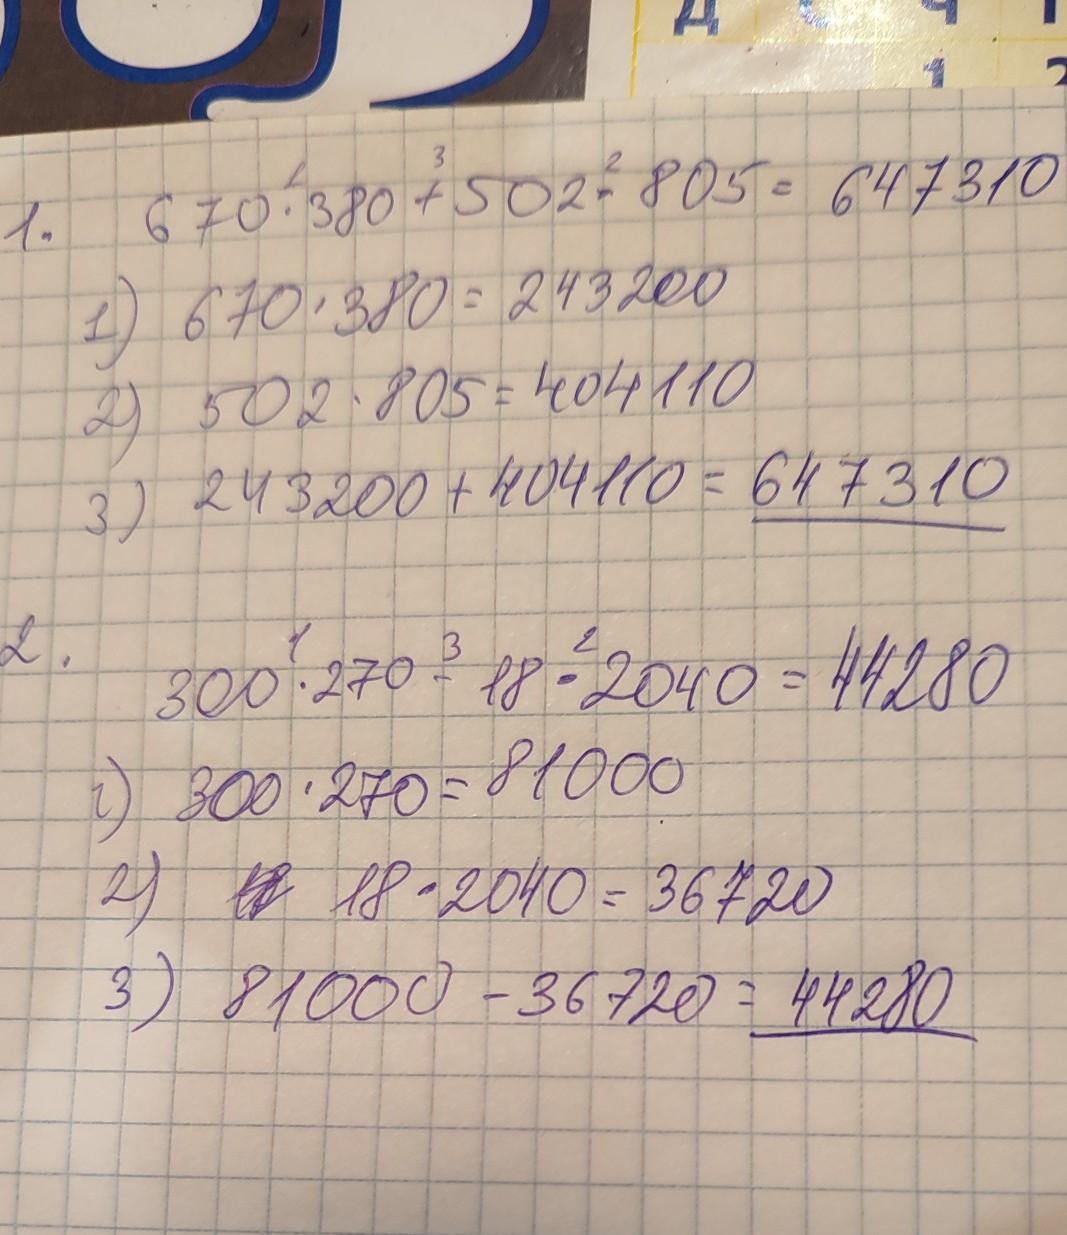 Д Ч
1 2
1. 670 · 380 + 502 · 805 = 647310
1 3 2
1) 670 · 380 = 243200
2) 502 · 805 = 404110
3) 243200 + 404110 = 647310
2. 300 · 270 - 18 · 2040 = 44280
1 3 2
1) 300 · 270 = 81000
2) 18 · 2040 = 36720
3) 81000 - 36720 = 44280